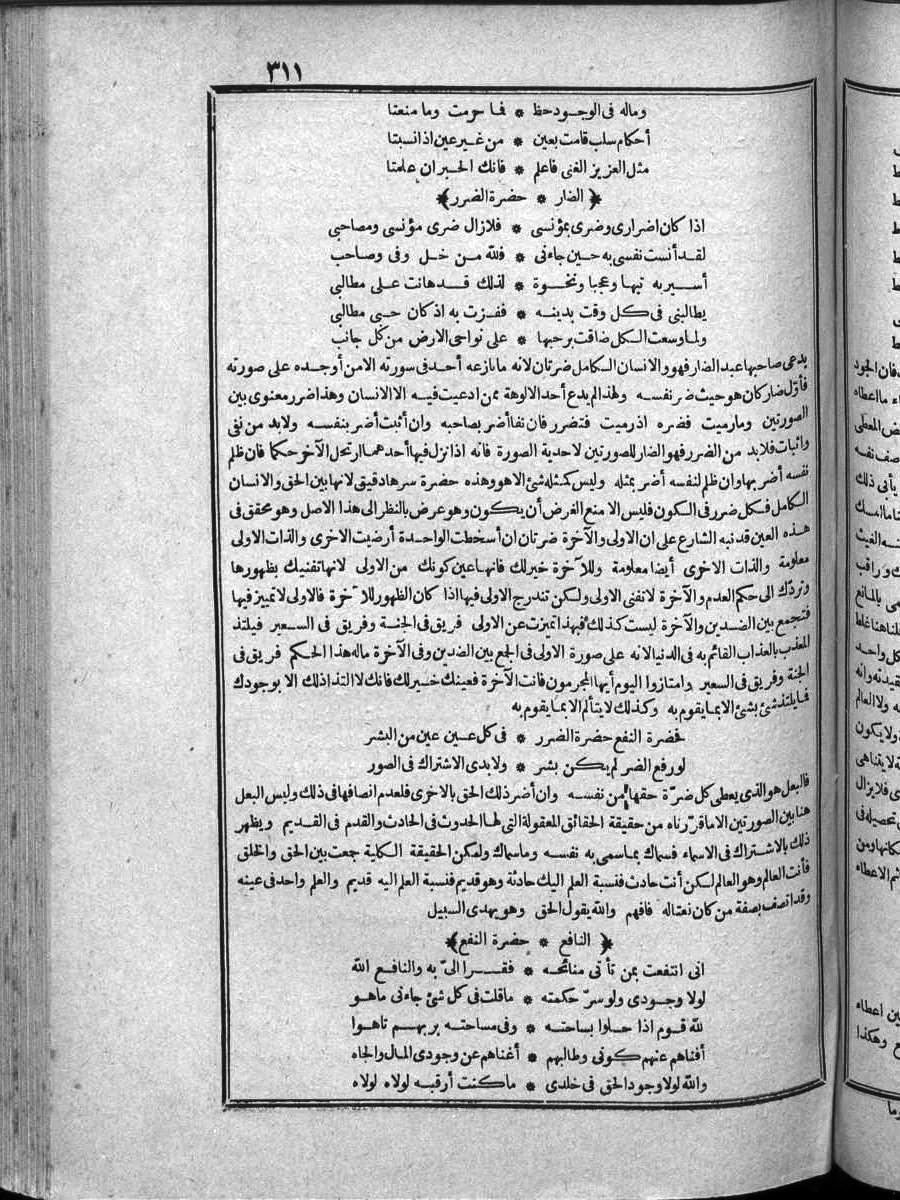 ٣١١
وماله فى الوجود حظ * فما حرمت وما منعتا
أحكام سلب قامت بعين * من غير عين اذا نسبتا
مثل العزيز الغنى فاعلم * فانك الحبر ان علمتا
﴿الضار * حضرة الضرر﴾
اذا كان اضرارى وضرى بمؤنسى * فلا زال ضرى مؤنسى ومصاحبى
لقد أنست نفسى به حين جاءنى * فلله من خل وفى وصاحب
أسير به تيها وعجبا ونخوة * لذلك قد هانت على مطالبى
يطالبنى فى كل وقت بدينه * ففزت به اذ كان حبى مطالبى
ولما وسعت الكل ضاقت برحبها * على نواحى الارض من كل جانب
يدعى صاحبها عبد الضار فهو والانسان الكامل ضرتان لانه ما نازعه أحد فى سورته الا من أوجده على صورته
فأول ضار كان هو حيث ضر نفسه ولهذا لم يدع أحد الالوهة ممن ادعيت فيه الا الانسان وهذا ضرر معنوى بين
الصورتين وما رميت فضره اذ رميت فتضرر فان نفا أضر بصاحبه وان أثبت أضر بنفسه ولا بد من نفى
واثبات فلا بد من الضرر فهو الضار للصورتين لاحدية الصورة فانه اذا نزل فيها أحدهما ارتحل الآخر حكما فان ظلم
نفسه أضر بها وان ظلم لنفسه أضر بمثله وليس كمثله شئ الا هو وهذه حضرة سرها دقيق لانها بين الحق والانسان
الكامل فكل ضرر فى الكون فليس الا منع الغرض أن يكون وهو عرض بالنظر الى هذا الاصل وهو محقق فى
هذه العين قد نبه الشارع على ان الاولى والآخرة ضرتان ان أسخطت الواحدة أرضيت الاخرى والذات الاولى
معلومة والذات الاخرى أيضا معلومة وللآخرة خير لك فانها عين كونك من الاولى لانها تفنيك بظهورها
وتردك الى حكم العدم والآخرة لا تفنى الاولى ولكن تندرج الاولى فيها اذا كان الظهور للآخرة فالاولى لا تمييز فيها
فتجمع بين الضدين والآخرة ليست كذلك فبهذا تميزت عن الاولى فريق فى الجنة وفريق فى السعير فيلتذ
المعذب بالعذاب القائم به فى الدنيا لانه على صورة الاولى فى الجمع بين الضدين وفى الآخرة ماله هذا الحكم فريق فى
الجنة وفريق فى السعير وامتازوا اليوم أيها المجرمون فانت الآخرة فعينك خير لك فانك لا التذاذ لك الا بوجودك
فما يلتذ شئ بشئ الا بما يقوم به وكذلك لا يتألم الا بما يقوم به
فحضرة النفع حضرة الضرر * فى كل عين عين من البشر
لو رفع الضر لم يكن بشر * ولا بدى الاشتراك فى الصور
فالبعل هو الذى يعطى كل ضرة حقها من نفسه وان أضر ذلك الحق بالاخرى فلعدم انصافها فى ذلك وليس البعل
هنا بين الصورتين الا ما قررناه من حقيقة الحقائق المعقولة التى لها الحدوث فى الحادث والقدم فى القديم ويظهر
ذلك بالاشتراك فى الاسماء فسماك بما سمى به نفسه وما سماك ولكن الحقيقة الكلية جمعت بين الحق والخلق
فأنت العالم وهو العالم لكن أنت حادث فنسبة العلم اليك حادثة وهو قديم فنسبة العلم اليه قديم والعلم واحد فى عينه
وقد اتصف بصفة من كان نعتاله فافهم والله يقول الحق وهو يهدى السبيل
﴿النافع * حضرة النفع﴾
انى انتفعت بمن تأتى منائحه * فقرا الىّ به والنافع الله
لولا وجودى ولولا سرّ حكمته * ما قلت فى كل شئ جاءنى ماهو
لله قوم اذا حلوا بساحته * وفى مساحته بربهم تاهوا
أفناهم عنهم كونى وطالبهم * أغناهم عن وجودى المال والجاه
والله لولا وجود الحق فى خلدى * ما كنت أرقبه لولاه لولاه